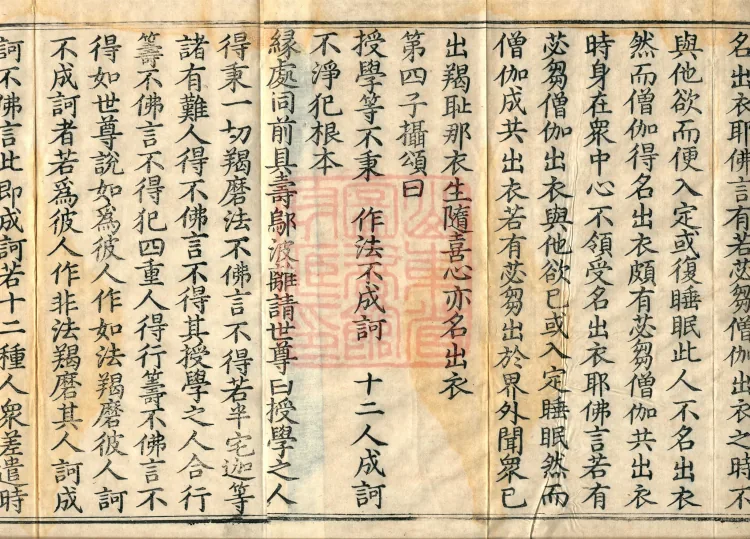 名出衣耶佛言有若苾芻僧伽出衣之時不
與他欲而便入定或復睡眠此人不名出衣
然而僧伽得名出衣頗有苾芻僧伽共出衣
時身在衆中心不領受名出衣耶佛言若有
苾芻僧伽出衣與他欲已或入定睡眠然而
僧伽成共出衣若有苾芻出於界外聞衆已
出羯恥那衣生隨喜心亦名出衣
第四子攝頌曰
授學等不秉 作法不成訶 十二人成訶
不淨犯根本
緣處同前具壽鄔波離請世尊曰授學之人
得秉一切羯磨法不佛言不得若半宅迦等
諸有難人得不佛言不得其授學之人合行
籌不佛言不得犯四重人得行籌不佛言不
得如世尊說如爲彼人作如法羯磨彼人訶
不成訶者若爲彼人作非法羯磨其人訶成
訶不佛言此即成訶若十二種人衆差遣時